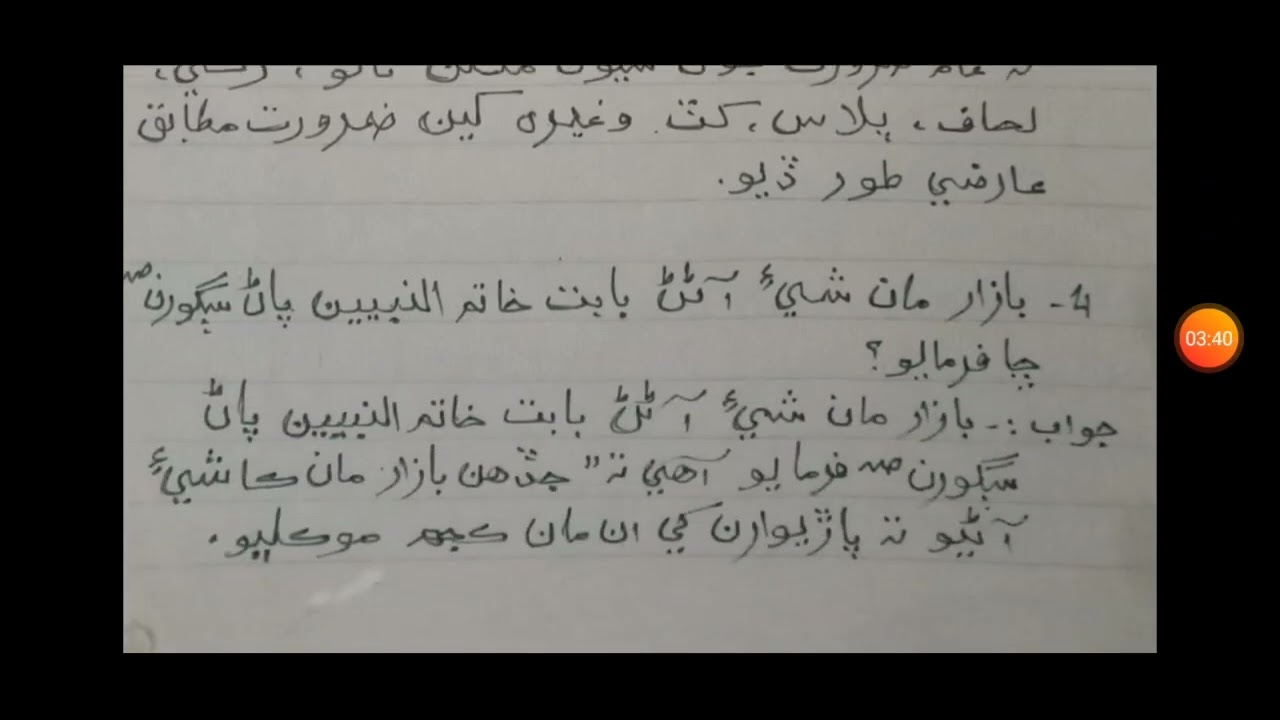 لحاف، پلاس، کٽ وغيره کين ضرورت مطابق
عارضي طور ڏيو.
4- بازار مان شيءِ آڻڻ بابت خاتم النبيين پاڻ سڳورن ﷺ
ڇا فرمايو؟
جواب :- بازار مان شيءِ آڻڻ بابت خاتم النبيين پاڻ
سڳورن ﷺ فرمايو آهي ته "جڏهن بازار مان ڪا شيءِ
آڻيو ته پاڙيوارن کي ان مان ڪجهه موڪليو.
03:40